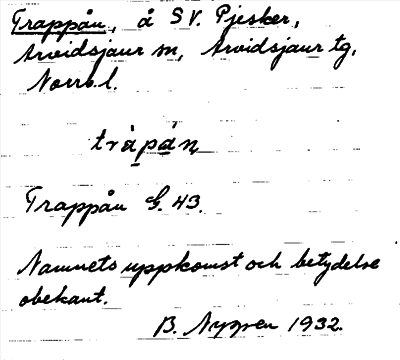 Trappån, å SV. Pjesker,
Arvidsjaur sn, Arvidsjaur tg,
Norrb.l.
tràpá̀n
Trappån G. 43.
Namnets uppkomst och betydelse
obekant.
B. Nygren 1932.